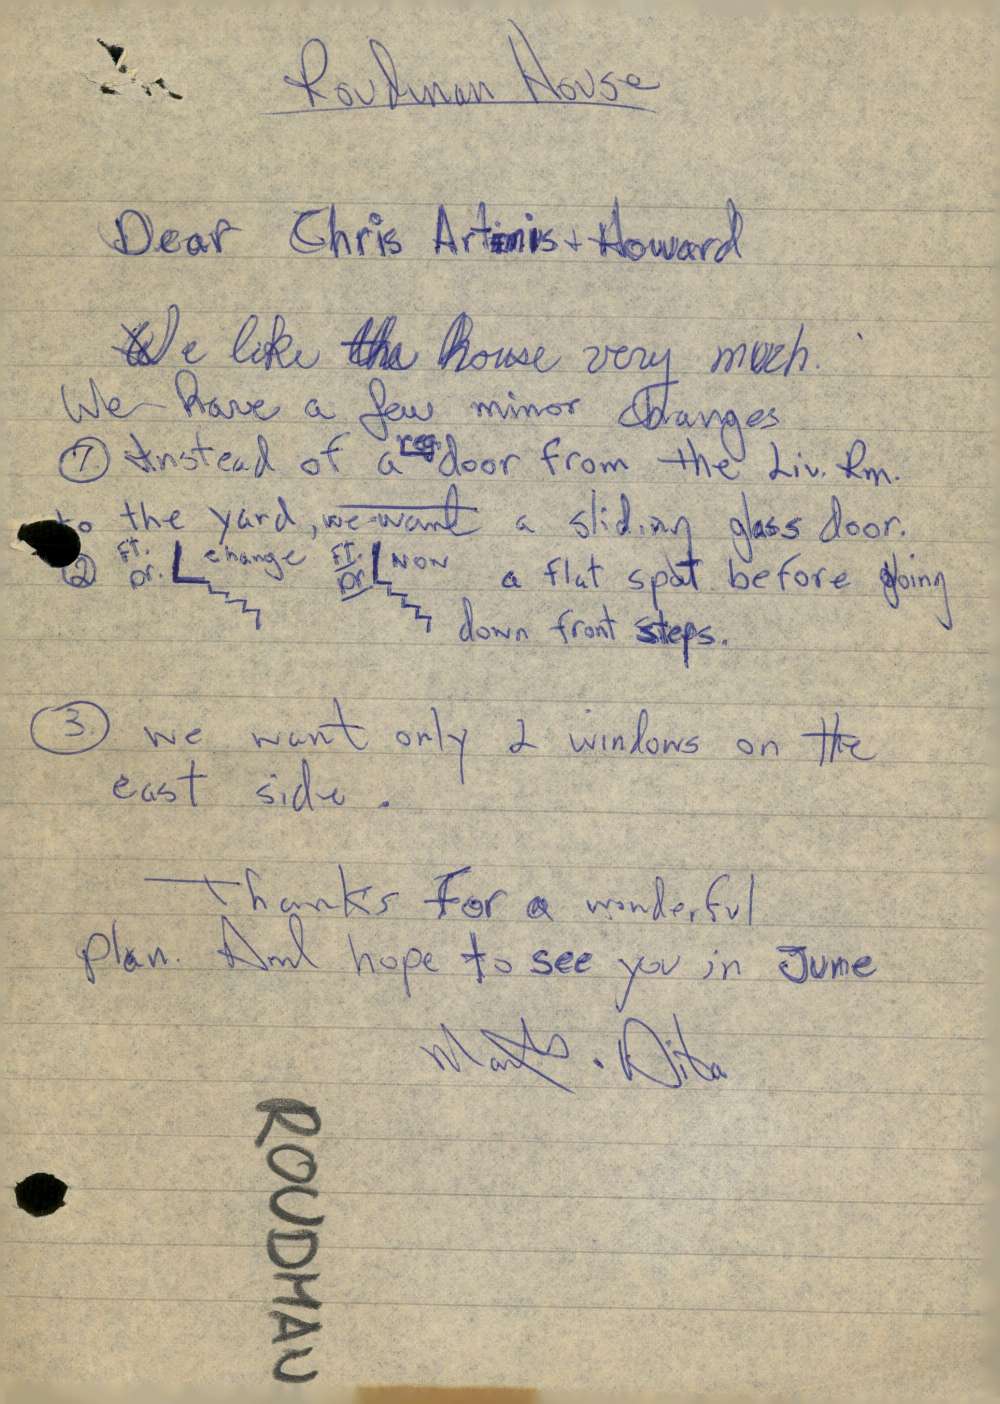 Roudman House
Dear Chris Artimis + Howard
We like the house very much.
We have a few minor changes
1. Instead of a reg door from the Liv. Rm.
to the yard, we want a sliding glass door.
2 FT. Dr. change FT. Dr NOW a flat spot before going
down front steps.
3. we want only 2 windows on the
east side.
Thanks For a wonderful
plan. And hope to see you in June
ROUDMAN